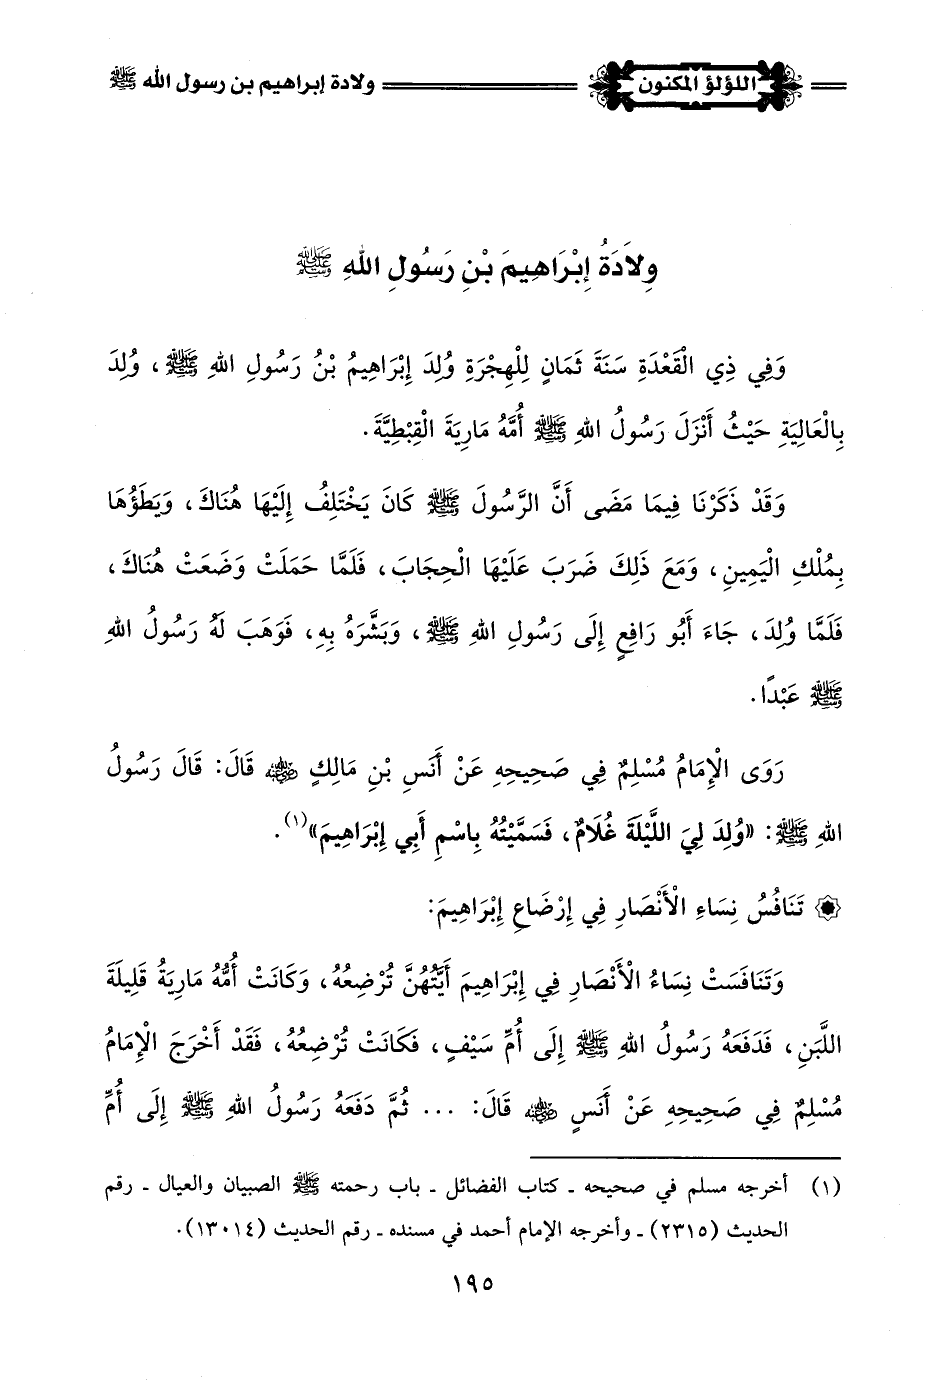 اللؤلؤ المكنون ولادة إبراهيم بن رسول الله ﷺ
وِلَادَةُ إِبْرَاهِيمَ بْنِ رَسُولِ اللهِ ﷺ
وَفِي ذِي الْقَعْدَةِ سَنَةَ ثَمَانٍ لِلْهِجْرَةِ وُلِدَ إِبْرَاهِيمُ بْنُ رَسُولِ اللهِ ﷺ، وُلِدَ
بِالْعَالِيَةِ حَيْثُ أَنْزَلَ رَسُولُ اللهِ ﷺ أُمَّهُ مَارِيَةَ الْقِبْطِيَّةَ.
وَقَدْ ذَكَرْنَا فِيمَا مَضَى أَنَّ الرَّسُولَ ﷺ كَانَ يَخْتَلِفُ إِلَيْهَا هُنَاكَ، وَيَطَؤُهَا
بِمُلْكِ الْيَمِينِ، وَمَعَ ذَلِكَ ضَرَبَ عَلَيْهَا الْحِجَابَ، فَلَمَّا حَمَلَتْ وَضَعَتْ هُنَاكَ،
فَلَمَّا وُلِدَ، جَاءَ أَبُو رَافِعٍ إِلَى رَسُولِ اللهِ ﷺ، وَبَشَّرَهُ بِهِ، فَوَهَبَ لَهُ رَسُولُ اللهِ
ﷺ عَبْدًا.
رَوَى الْإِمَامُ مُسْلِمٌ فِي صَحِيحِهِ عَنْ أَنَسِ بْنِ مَالِكٍ رضي الله عنه قَالَ: قَالَ رَسُولُ
اللهِ ﷺ: «وُلِدَ لِيَ اللَّيْلَةَ غُلَامٌ، فَسَمَّيْتُهُ بِاسْمِ أَبِي إِبْرَاهِيمَ»(١).
تَنَافُسُ نِسَاءِ الْأَنْصَارِ فِي إِرْضَاعِ إِبْرَاهِيمَ:
وَتَنَافَسَتْ نِسَاءُ الْأَنْصَارِ فِي إِبْرَاهِيمَ أَيَّتُهُنَّ تُرْضِعُهُ، وَكَانَتْ أُمُّهُ مَارِيَةُ قَلِيلَةَ
اللَّبَنِ، فَدَفَعَهُ رَسُولُ اللهِ ﷺ إِلَى أُمِّ سَيْفٍ، فَكَانَتْ تُرْضِعُهُ، فَقَدْ أَخْرَجَ الْإِمَامُ
مُسْلِمٌ فِي صَحِيحِهِ عَنْ أَنَسٍ رضي الله عنه قَالَ: ... ثُمَّ دَفَعَهُ رَسُولُ اللهِ ﷺ إِلَى أُمِّ
(١) أخرجه مسلم في صحيحه ـ كتاب الفضائل ـ باب رحمته ﷺ الصبيان والعيال ـ رقم
الحديث (٢٣١٥) ـ وأخرجه الإمام أحمد في مسنده ـ رقم الحديث (١٣٠١٤).
١٩٥